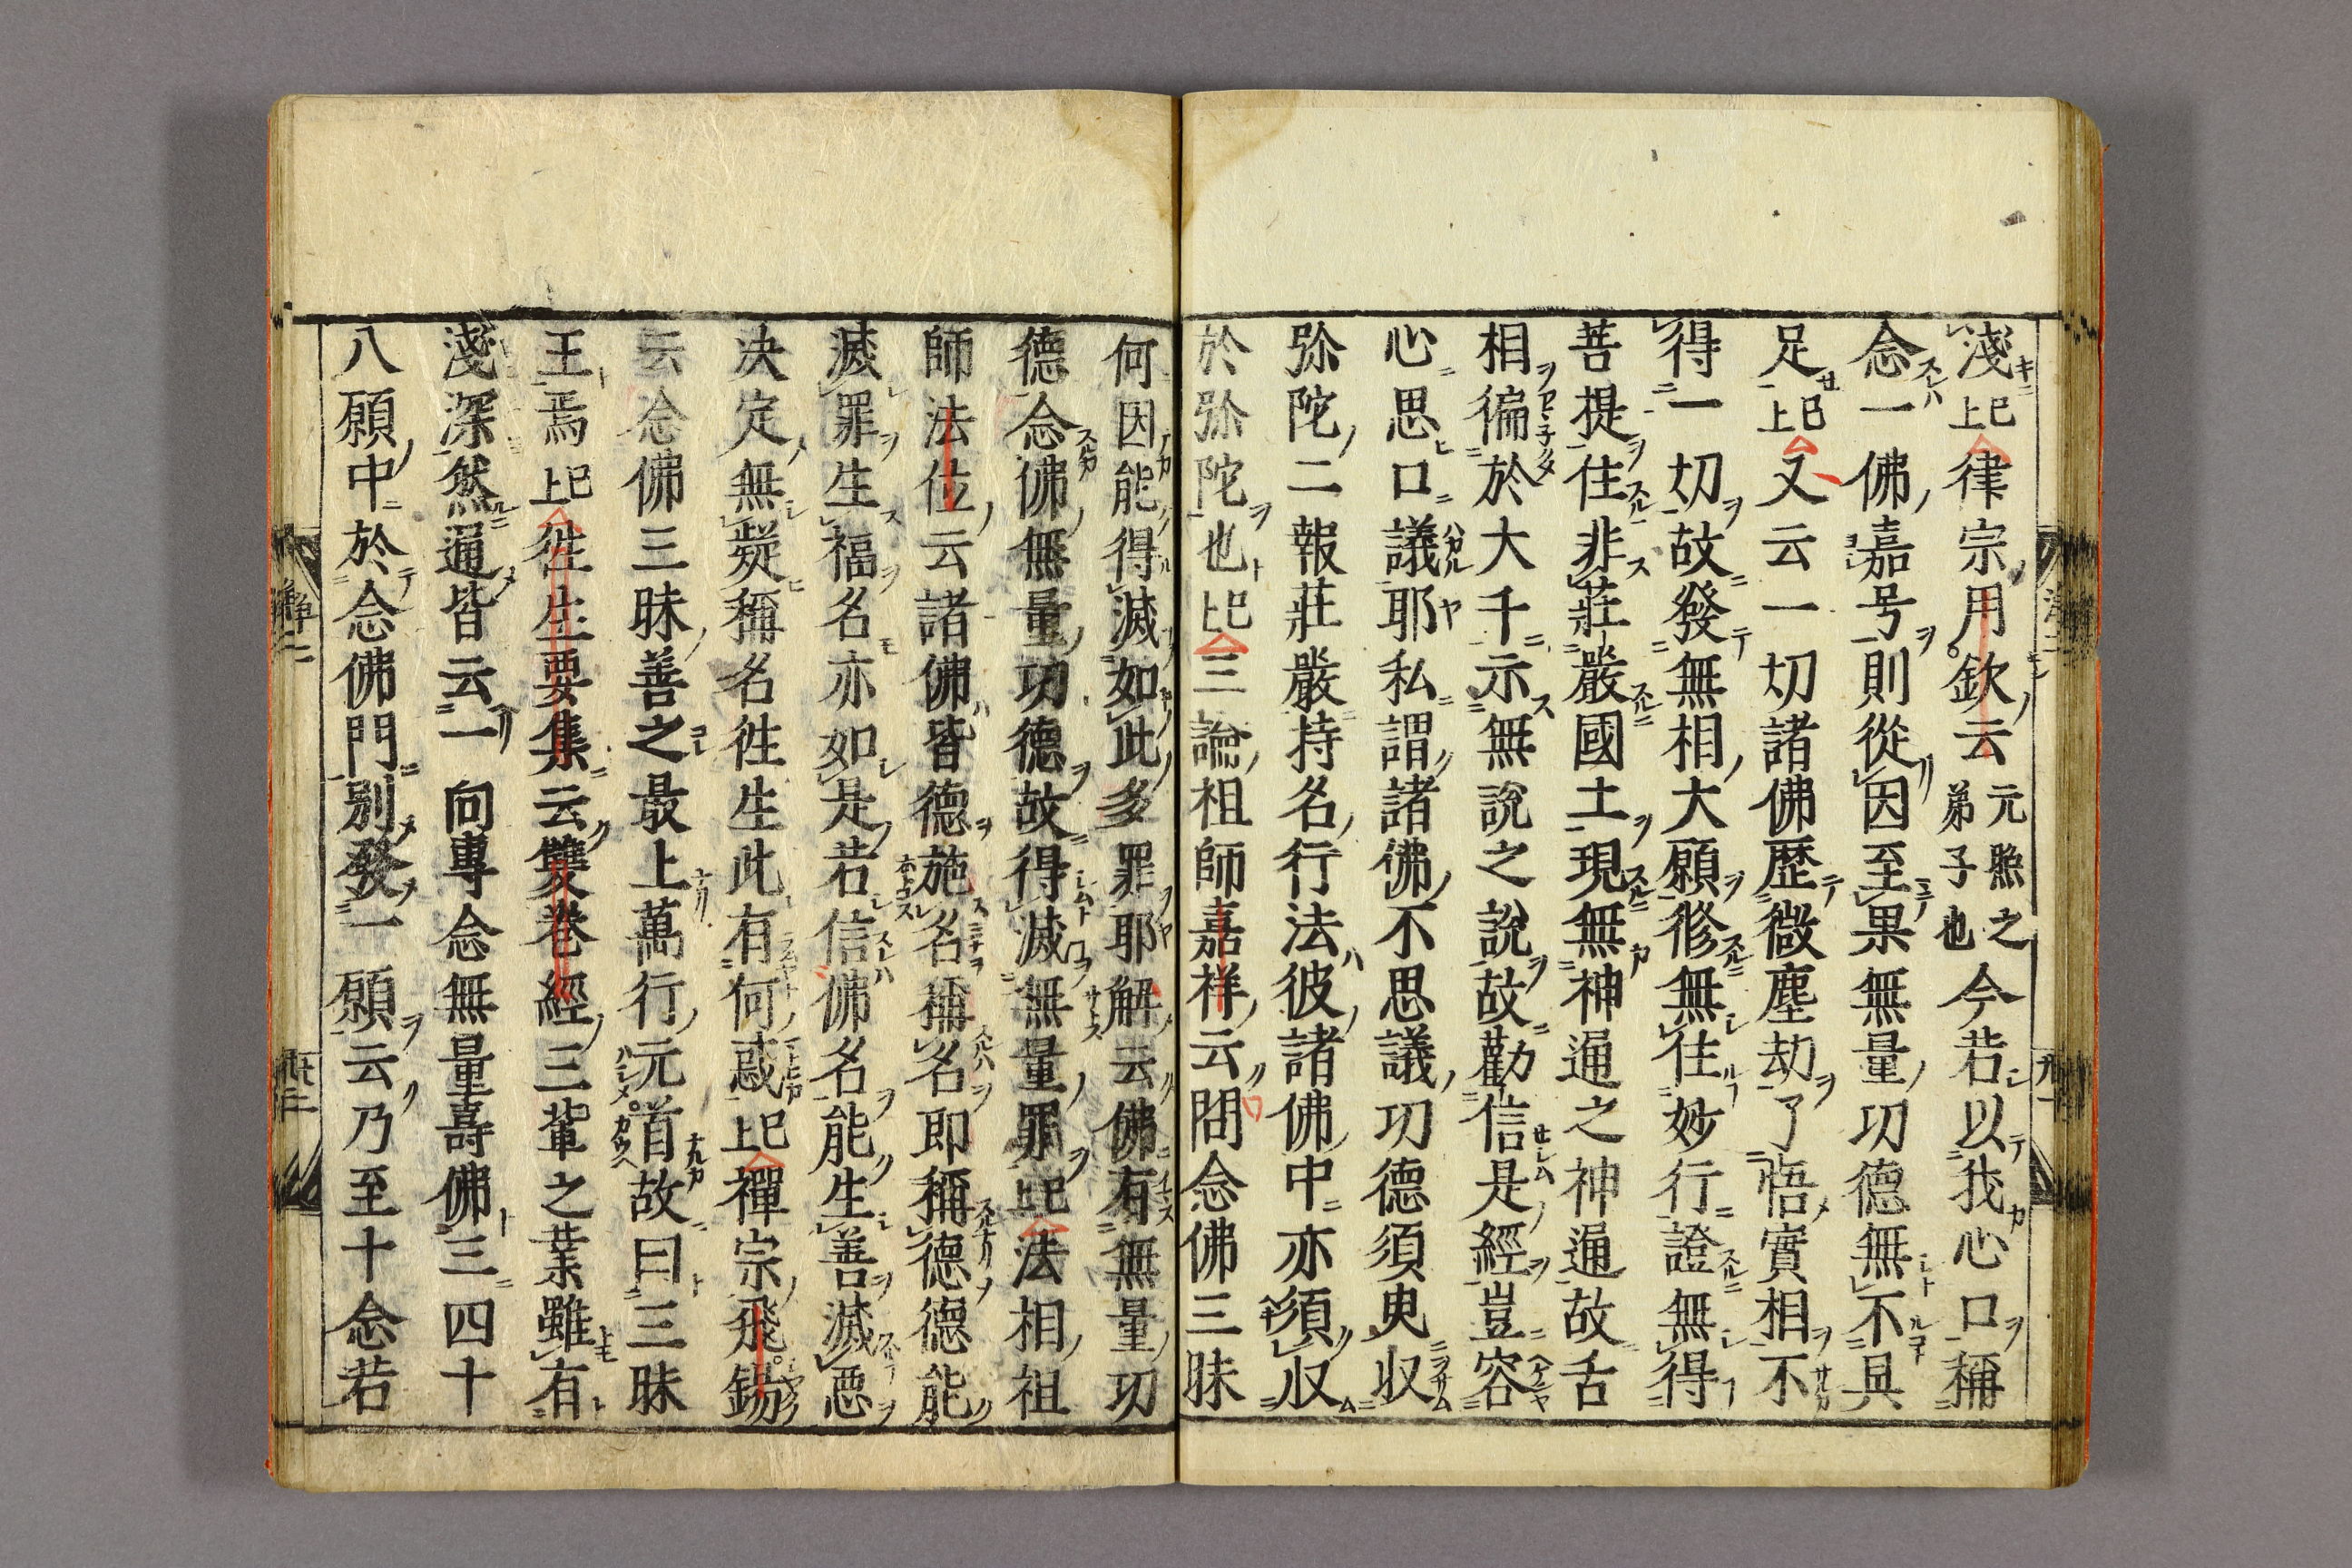 淺已上律宗用欽云元照之弟子也今若以我心口稱
念一佛嘉号則從因至果無量功德無不具
足已上又云一切諸佛歷微塵劫了悟實相不
得一切故發無相大願修無住妙行證無得
菩提住非莊嚴國土現無神通之神通故舌
相徧於大千示無說之說故勸信是經豈容
心思口議耶私謂諸佛不思議功德須臾収
弥陀二報莊嚴持名行法彼諸佛中亦須収
於弥陀也已上三論祖師嘉祥云問念佛三昧
何因能得滅如此多罪耶解云佛有無量功
德念佛無量功德故得滅無量罪已上法相祖
師法位云諸佛皆德施名稱名即稱德德能
滅罪生福名亦如是若信佛名能生善滅惡
決定無疑稱名徃生此有何惑已上禪宗飛錫
云念佛三昧善之最上萬行元首故曰三昧
王焉已上徃生要集云雙卷經三輩之業雖有
淺深然通皆云一向專念無量壽佛三四十
八願中於念佛門別發一願云乃至十念若